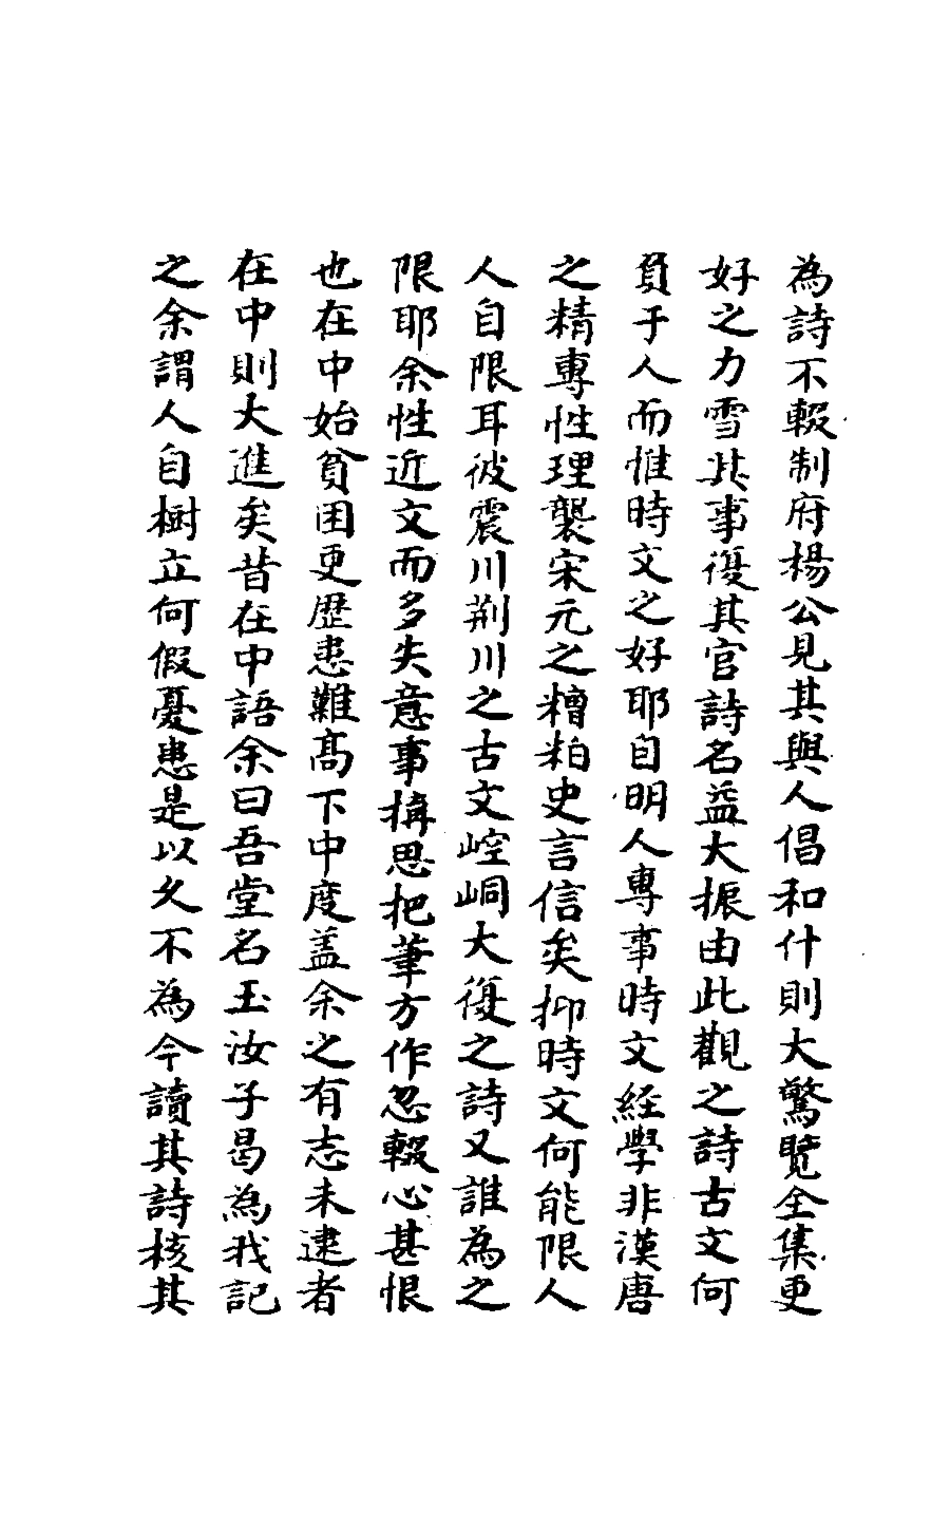 為詩不輟制府楊公見其與人倡和什則大驚覽全集更
好之力雪其事復其官詩名益大振由此觀之詩古文何
負于人而惟時文之好耶自明人專事時文經學非漢唐
之精專性理襲宋元之糟粕史言信矣抑時文何能限人
人自限耳彼震川荆川之古文崆峒大復之詩又誰為之
限耶余性近文而多失意事搆思把筆方作忽輟心甚恨
也在中始貧困更歷患難高下中度盖余之有志未逮者
在中則大進矣昔在中語余曰吾堂名玉汝子曷為我記
之余謂人自樹立何假憂患是以久不為今讀其詩核其